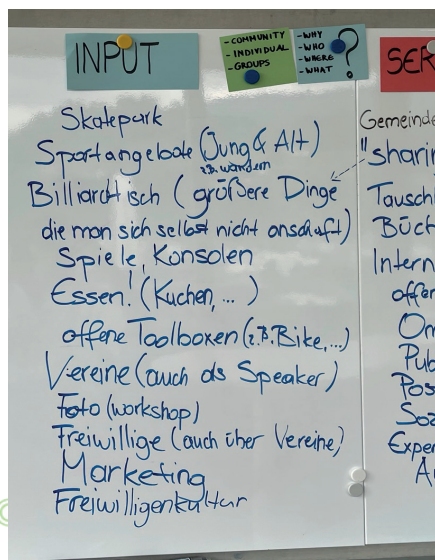 INPUT
- COMMUNITY
- INDIVIDUAL
- GROUPS
- WHY
- WHO
- WHERE
- WHAT
?
SER
Skatepark
Sportangebote (Jung & Alt)
z.B. wandern
Billiardtisch (größere Dinge
die man sich selbst nicht anschaft)
Spiele, Konsolen
Essen! (Kuchen, ... )
offene Toolboxen (z.B. Bike, ...)
Vereine (auch als Speaker)
Foto (workshop)
Freiwillige (auch über Vereine)
Marketing
Freiwilligenkultur
Gemeinde
"sharin
Tausch
Büch
Intern
offen
On
Pub
Pos
Soz
Exper
A